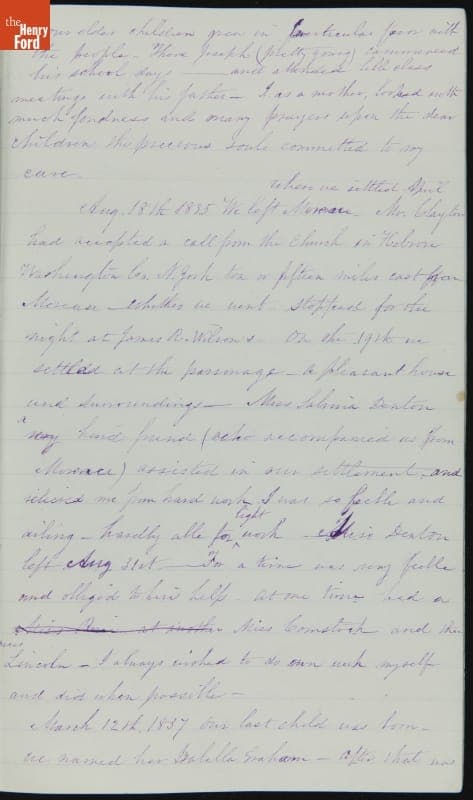 the Henry Ford
our older children grew in particular favor with
the people. There Joseph (pretty young) commenced
his school days — and attended little class
meetings with his father — I as a mother, looked with
much fondness and many prayers upon the dear
children, the precious souls committed to my
care.
where we settled April
Aug. 18th 1835 We left Moreau. Mr. Clayton
had accepted a call from the church in Hebron
Washington Co. N. York ten or fifteen miles east from
Moreau — whither we went stopped for the
night at James R. Wilson's. On the 19th we
settled at the parsonage — a pleasant house
and surroundings — Miss Sabrina Denton
a very kind friend (who accompanied us from
Moreau) assisted in our settlement, and
relieved me from hard work I was so feeble and
ailing — hardly able for light work — Miss Denton
left Aug 31st. — For a time was very feeble
and obliged to hire help. at one time had a
Miss Comstock and then
Miss
Lincoln — I always wished to do own work myself
and did when possible —
March 12th, 1837 our last child was born —
we named her Isabella Graham — After that was